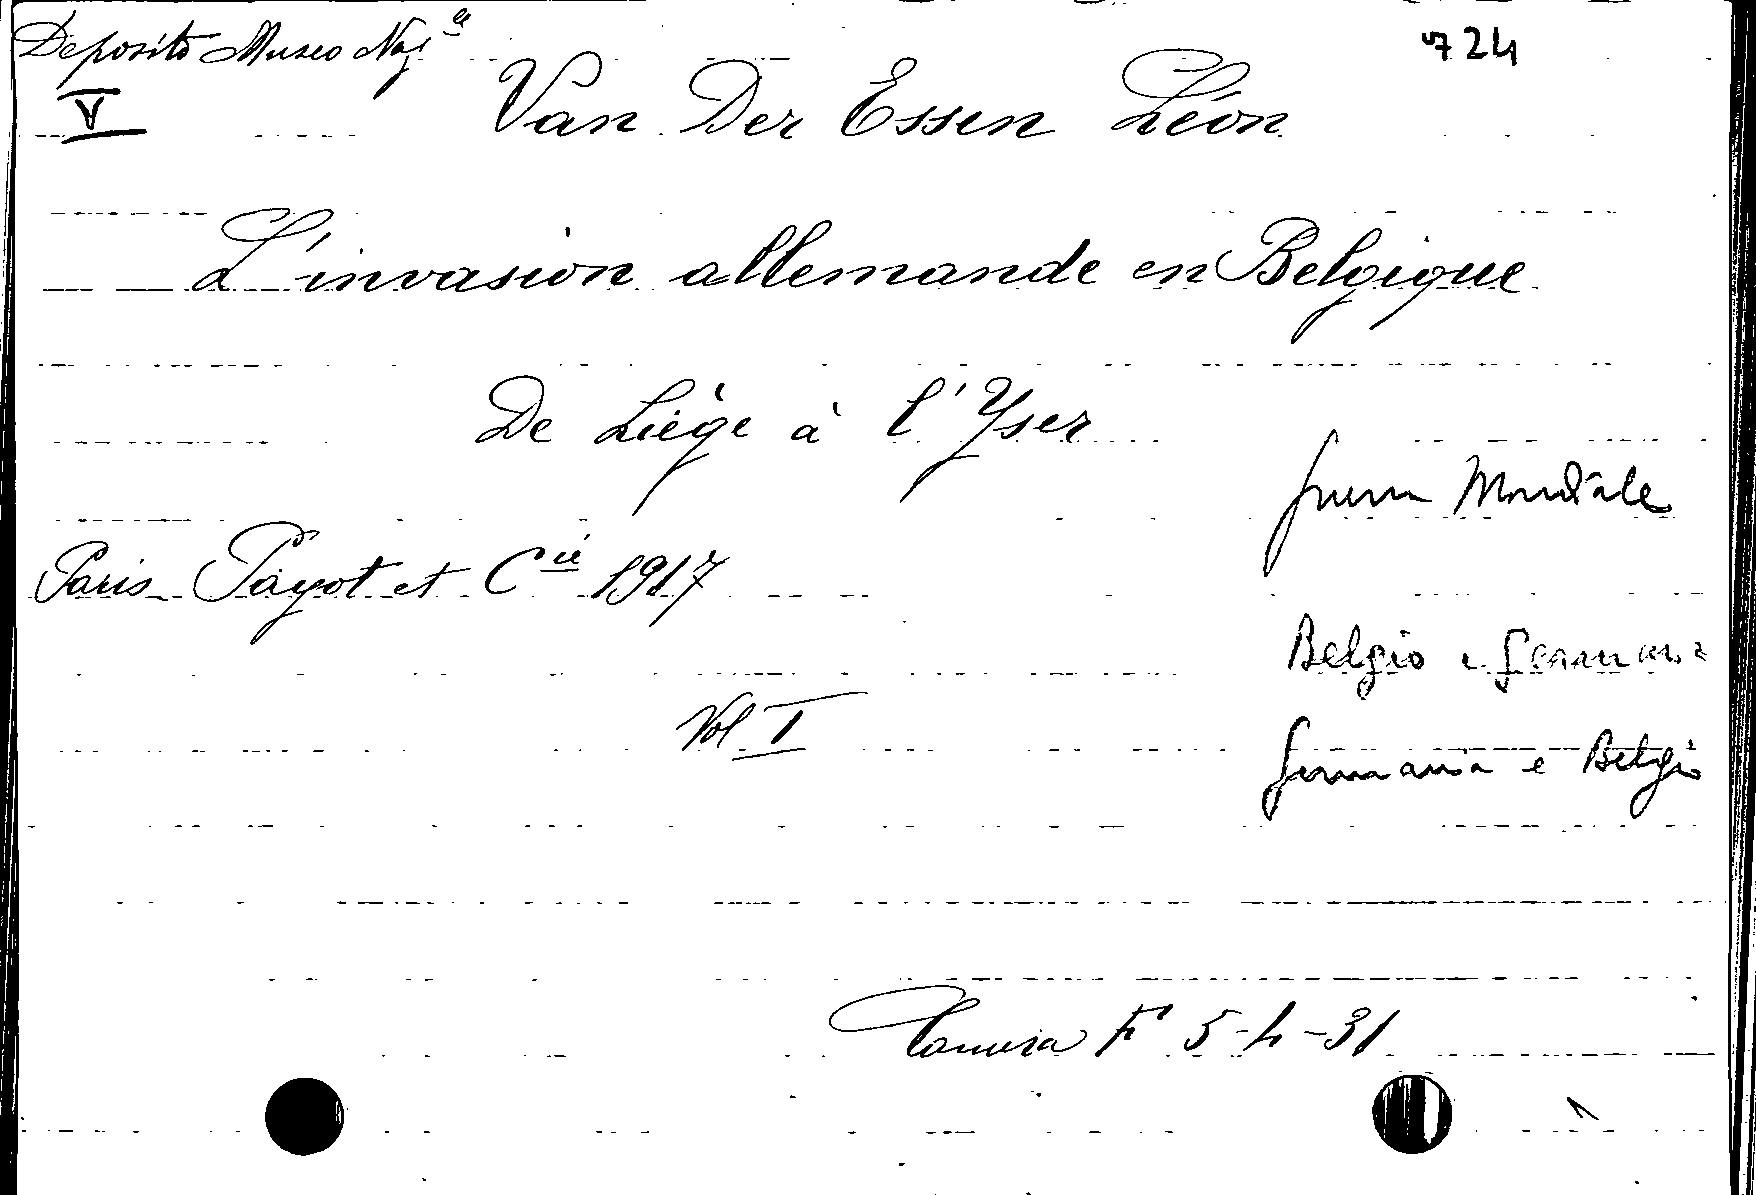 Deposito Museo Naz.le
724
V
Van Der Essen Léon
L'invasion allemande en Belgique
De Liège à l'Yser
Guerra Mondiale
Paris Payot et Cie 1917
Belgio e Germania
Vol I
Germania e Belgio
Camera F 5-4-31